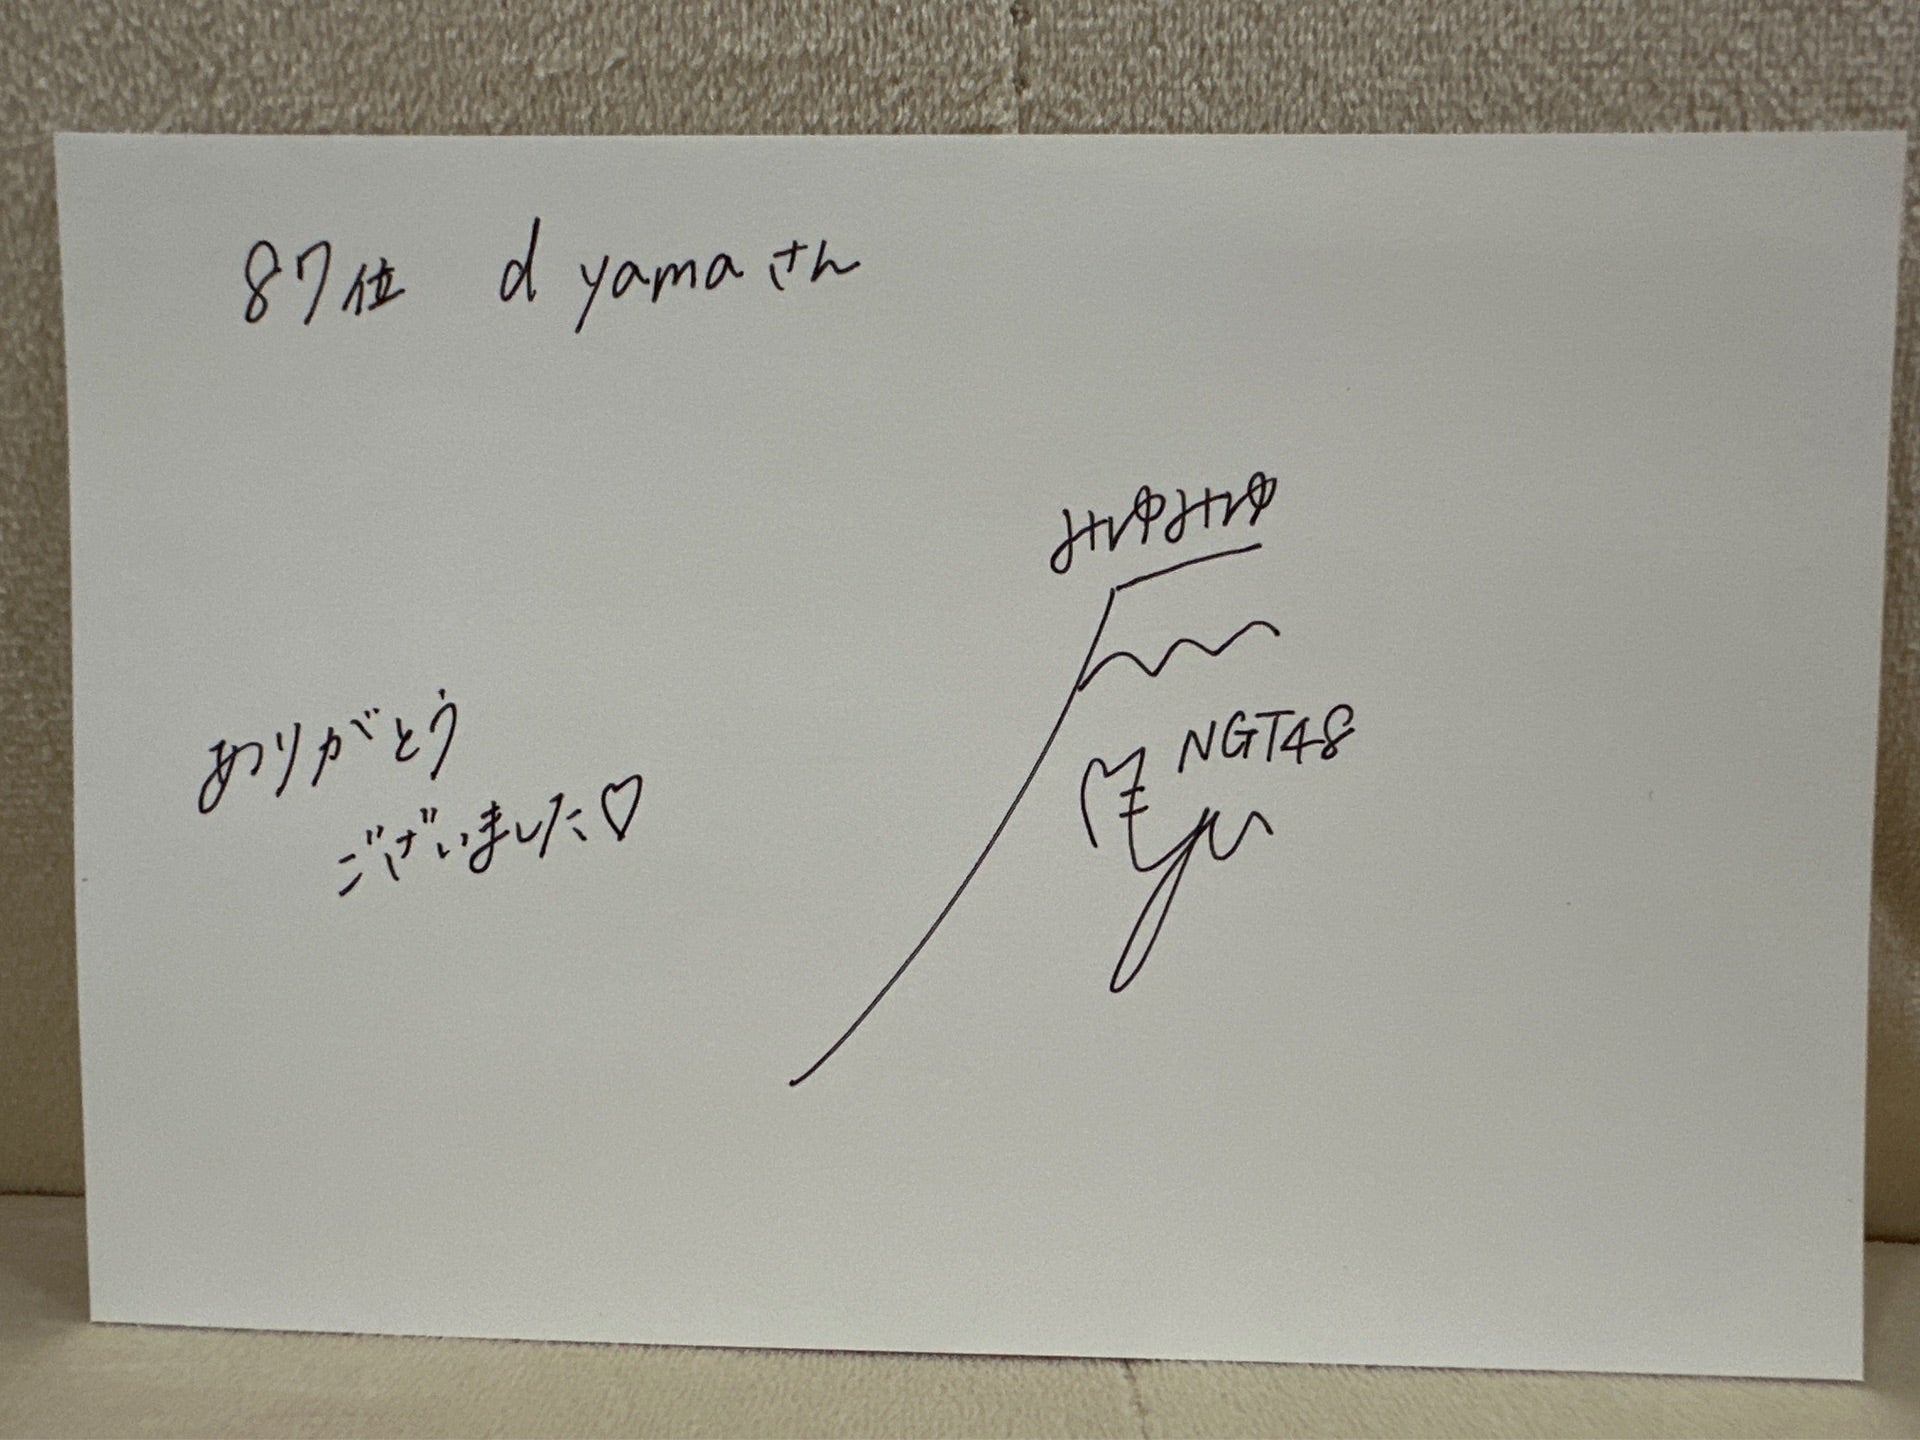 87位 d yamaさん
ありがとう
ございました♡
みゆみゆ
NGT48